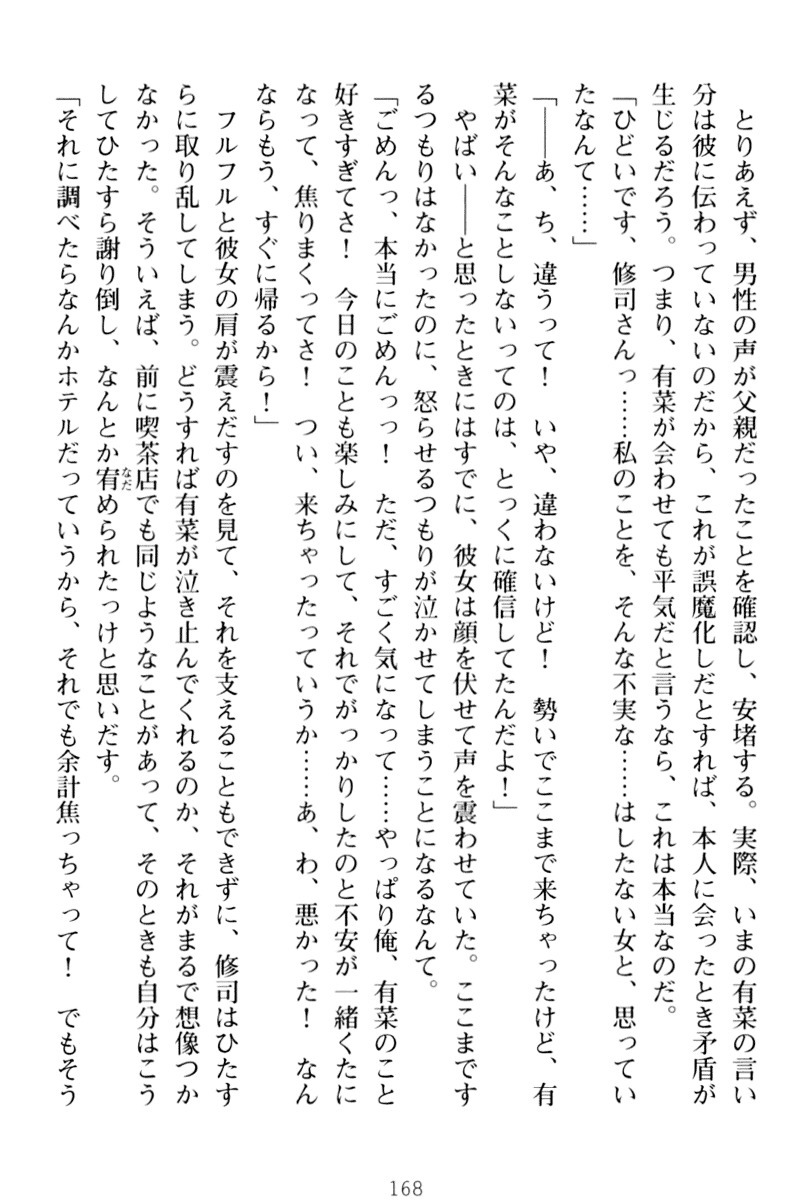 とりあえず、男性の声が父親だったことを確認し、安堵する。実際、いまの有菜の言い
分は彼に伝わっていないのだから、これが誤魔化しだとすれば、本人に会ったとき矛盾が
生じるだろう。つまり、有菜が会わせても平気だと言うなら、これは本当なのだ。
「ひどいです、修司さんっ……私のことを、そんな不実な……はしたない女と、思ってい
たなんて……」
「――あ、ち、違うって！　いや、違わないけど！　勢いでここまで来ちゃったけど、有
菜がそんなことしないってのは、とっくに確信してたんだよ！」
　やばい――と思ったときにはすでに、彼女は顔を伏せて声を震わせていた。ここまです
るつもりはなかったのに、怒らせるつもりが泣かせてしまうことになるなんて。
「ごめんっ、本当にごめんっっ！　ただ、すごく気になって……やっぱり俺、有菜のこと
好きすぎてさ！　今日のことも楽しみにして、それでがっかりしたのと不安が一緒くたに
なって、焦りまくってさ！　つい、来ちゃったっていうか……あ、わ、悪かった！　なん
ならもう、すぐに帰るから！」
　フルフルと彼女の肩が震えだすのを見て、それを支えることもできずに、修司はひたす
らに取り乱してしまう。どうすれば有菜が泣き止んでくれるのか、それがまるで想像つか
なかった。そういえば、前に喫茶店でも同じようなことがあって、そのときも自分はこう
してひたすら謝り倒し、なんとか宥なだめられたっけと思いだす。
「それに調べたらなんかホテルだっていうから、それでも余計焦っちゃって！　でもそう
168